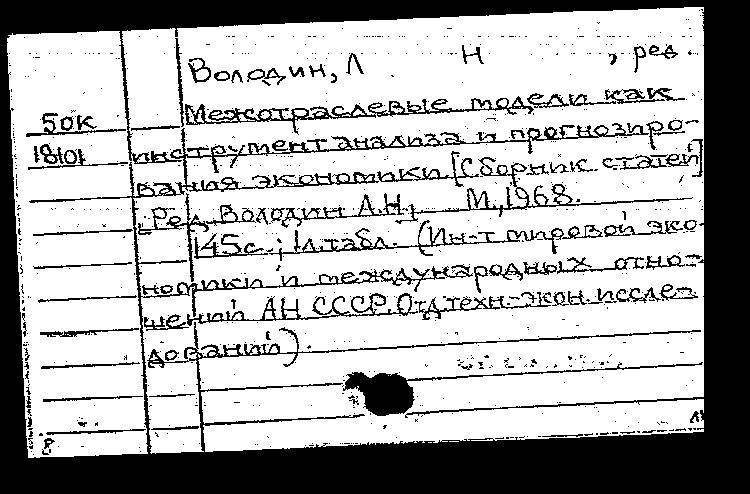 Володин, Л Н , ред.
50к Межотраслевые модели как
18101 инструмент анализа и прогнозиро-
вания экономики [Сборник статей]
[Ред. Володин Л.Н] М., 1968.
145с.; 1л.табл. (Ин-т мировой эко-
номики и международных отно-
шений АН СССР. Отд.техн.-экон. иссле-
дований).